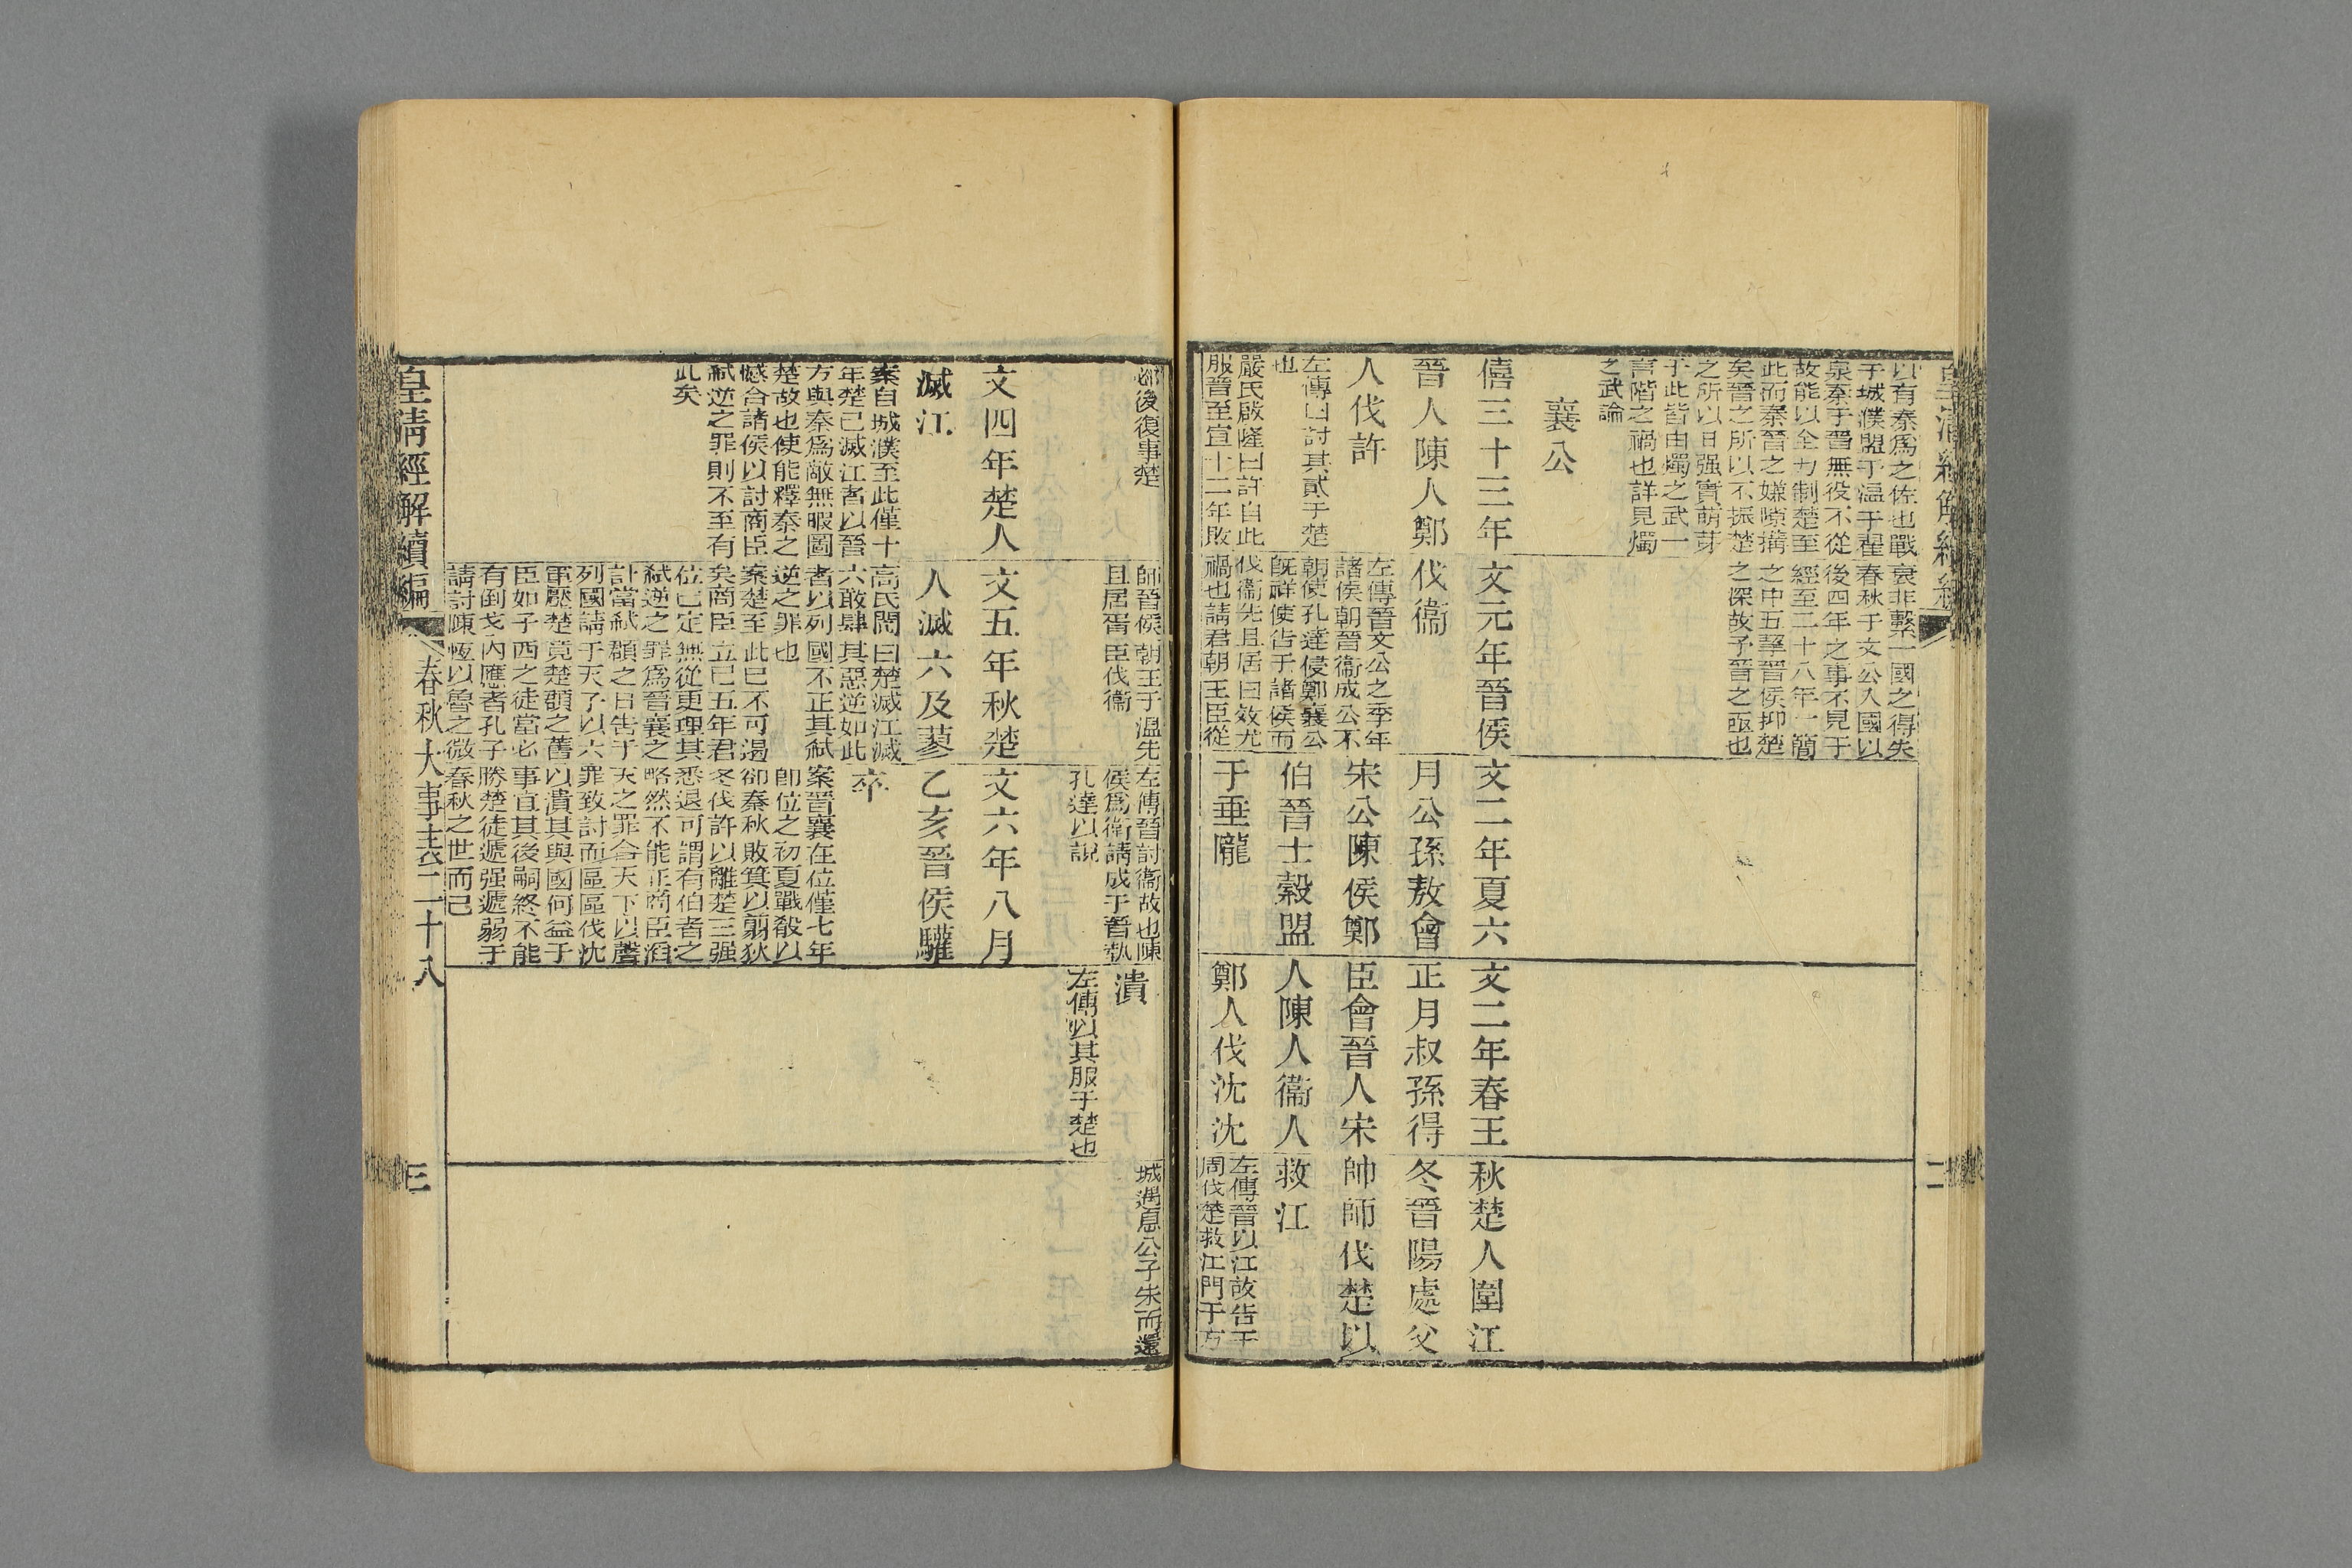 皇清經解續編
二
以有秦爲之佐也戰
于城濮盟于溫于翟
泉秦于晉無役不從
故能以全力制楚至
此而秦晉之嫌隙搆
矣晉之所以不振楚
之所以日强實萌芽
于此皆由燭之武一
言階之禍也詳見燭
之武論
襄公
僖三十三年
晉人陳人鄭
人伐許
左傳曰討其貳于楚
也
嚴氏啟隆曰許自此
服晉至宣十二年敗
衰非繫一國之得失
春秋于文公入國以
後四年之事不見于
經至二十八年一簡
之中五擧晉侯抑楚
之深故予晉之亟也
文元年晉侯
伐衞
左傳晉文公之季年
諸侯朝晉衞成公不
朝使孔達侵鄭襄公
旣祥使告于諸侯而
伐衞先且居曰效尤
禍也請君朝王臣從
文二年夏六
月公孫敖會
宋公陳侯鄭
伯晉士穀盟
于垂隴
文三年春王
正月叔孫得
臣會晉人宋
人陳人衞人
鄭人伐沈沈
秋楚人圍江
冬晉陽處父
帥師伐楚以
救江
左傳晉以江故告于
周伐楚救江門于方
邲後復事楚
文四年楚人
滅江
案自城濮至此僅十
年楚已滅江者以晉
方與秦爲敵無暇圖
楚故也使能釋秦之
憾合諸侯以討商臣
弑逆之罪則不至有
此矣
師晉侯朝王于溫先
且居胥臣伐衞
文五年秋楚
人滅六及蓼
高氏閌曰楚滅江滅
六敢肆其惡逆如此
者以列國不正其弑
逆之罪也
案楚至此已不可遏
矣商臣立已五年君
位已定無從更理其
弑逆之罪爲晉襄之
計當弑頵之日告于
列國請于天子以六
軍壓楚竟楚頵之舊
臣如子西之徒當必
有倒戈內應者孔子
請討陳恆以魯之微
左傳晉討衞故也陳
侯爲衞請成于晉執
孔達以說
文六年八月
乙亥晉侯驩
卒
案晉襄在位僅七年
卽位之初夏戰殽以
卻秦秋敗箕以翦狄
冬伐許以離楚三强
悉退可謂有伯者之
略然不能正商臣滔
天之罪合天下以聲
罪致討而區區伐沈
以潰其與國何益于
事宜其後嗣終不能
勝楚徒遞强遞弱于
春秋之世而已
潰
左傳以其服于楚也
城遇息公子朱而還
皇清經解續編
春秋大事表二十八
三